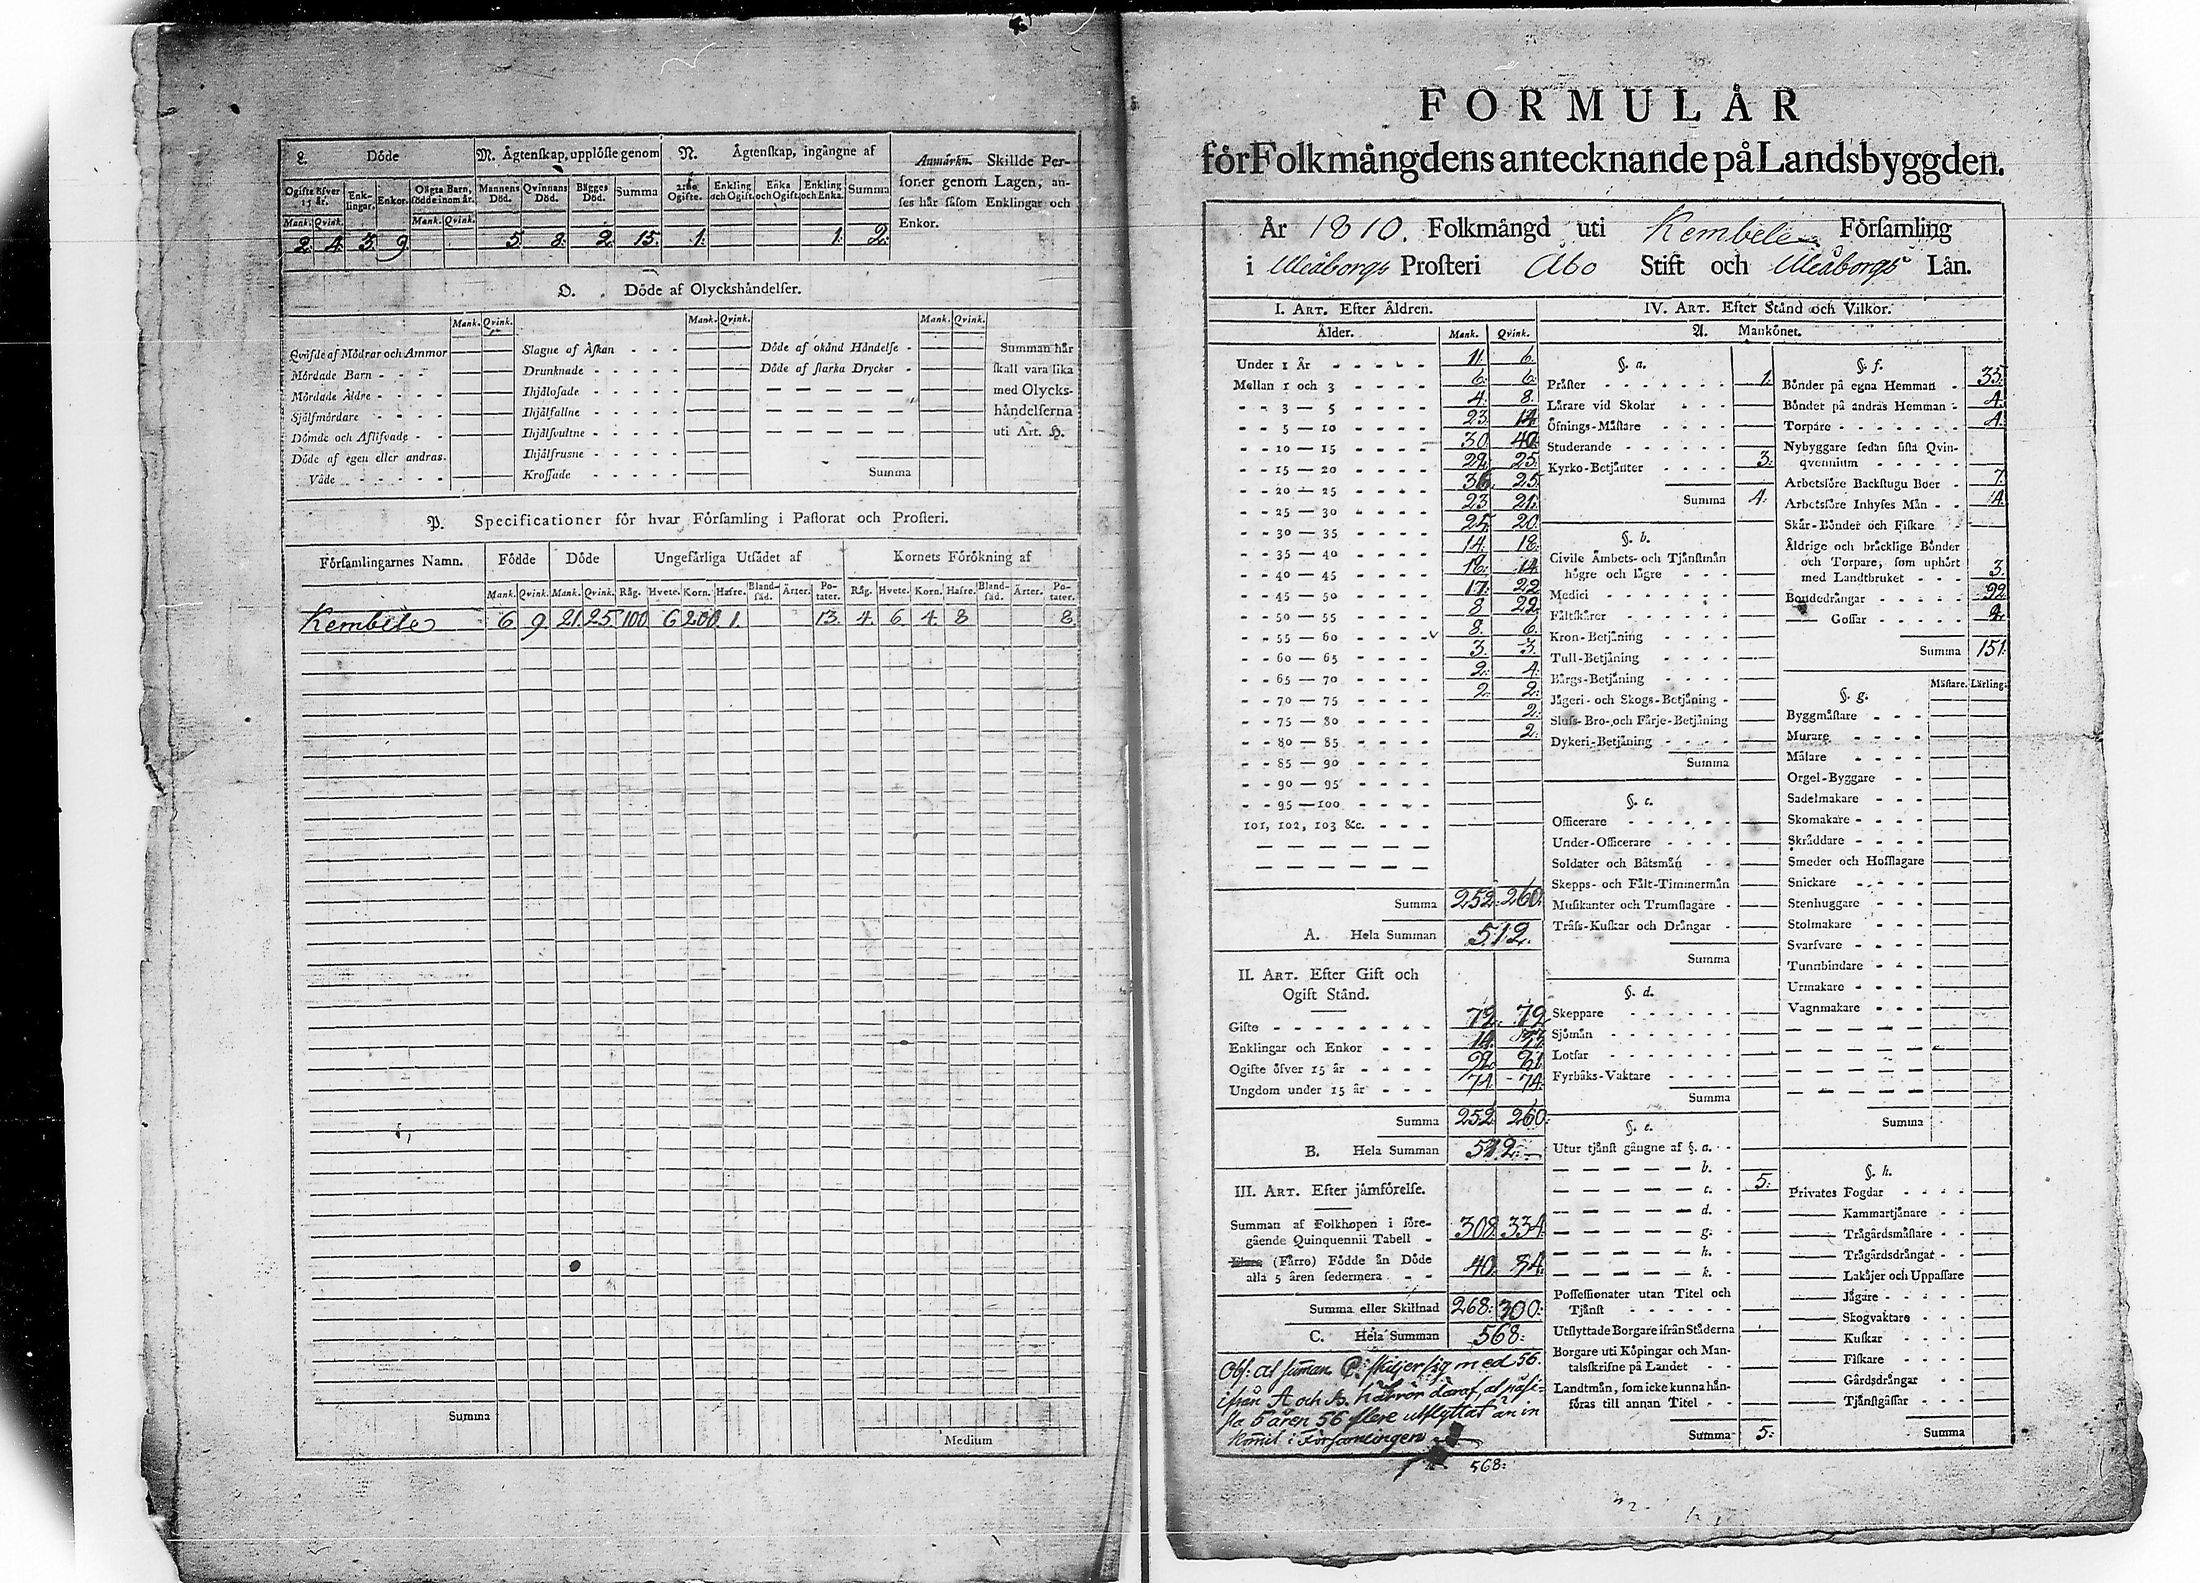 L. Döde
M. Ägtenskap, upplöste genom
N. Ägtenskap, ingångne af
Anmärkn. Skillde Per-
soner genom Lagen, an-
ses här såsom Enklingar och
Enkor.
Ogifte öfver 15 år. Enk-lingar. Enkor. Oägta Barn, födde inom år. Mannens Död. Qvinnans Död. Bägges Död. Summa Ogifte. Enkling och Ogift. Enka och Ogift. Enkling och Enka. Summa
Mank. Qvink. Mank. Qvink.
2. 4. 3. 9. 5. 8. 2. 15. 1. 1. 2.
O. Döde af Olyckshändelser.
Mank. Qvink. Mank. Qvink. Mank. Qvink.
Qväfde af Mödrar och Ammor
Mördade Barn - - - -
Mördade Äldre - - - -
Självmördare - - - -
Dömde och Aflifvade - -
Döde af egen eller andras.
Våde - - - - -
Slagne af Åskan - - -
Drunknade - - - - -
Ihjälosade - - - -
Ihjälfallne - - - - -
Ihjälsvultne - - - - -
Ihjälfrusne - - - - -
Krossade - - - -
Döde af okänd Händelse -
Döde af starka Drycker -
Summa
Summan här
skall vara lika
med Olycks-
händelserna
uti Art. H.
P. Specificationer för hvar Församling i Pastorat och Prosteri.
Församlingarnes Namn. Födde Döde Ungefärliga Utsädet af Kornets Förökning af
Mank. Qvink. Mank. Qvink. Råg. Hvete. Korn. Hafre. Bland-säd. Ärter. Po-tater. Råg. Hvete. Korn. Hafre. Bland-säd. Ärter. Po-tater.
Kembele 6 9 21. 25 100 6 200. 1. 13. 4. 6. 4. 8 8.
Summa
Medium
FORMULÄR
för Folkmängdens antecknande på Landsbyggden.
År 1810. Folkmängd uti Kembele Församling
i Uleåborgs Prosteri Åbo Stift och Uleåborgs Län.
I. ART. Efter Åldren.
Ålder. Mank. Qvink.
Under 1 År - - - - - 11. 6.
Mellan 1 och 3 - - - - 6. 6.
- - 3 — 5 - - - - 4. 8.
- - 5 — 10 - - - - 23. 14.
- - 10 — 15 - - - - 30. 40.
- - 15 — 20 - - - - 29. 25.
- - 20 — 25 - - - - 36. 25.
- - 25 — 30 - - - - 23. 21.
- - 30 — 35 - - - - 25. 20.
- - 35 — 40 - - - - 14. 18.
- - 40 — 45 - - - - 16. 14.
- - 45 — 50 - - - - 17. 22.
- - 50 — 55 - - - - 8 22.
- - 55 — 60 - - - - 8. 6.
- - 60 — 65 - - - - 3. 3.
- - 65 — 70 - - - - 2. 4.
- - 70 — 75 - - - - 2. 2.
- - 75 — 80 - - - - 2.
- - 80 — 85 - - - - 2.
- - 85 — 90 - - - -
- - 90 — 95 - - - -
- - 95 — 100 - - - -
101, 102, 103 &c. - - -
Summa 252. 260.
A. Hela Summan 512.
II. ART. Efter Gift och
Ogift Stånd.
Gifte - - - - - - - - 72. 72
Enklingar och Enkor - - - 14. 33
Ogifte öfver 15 år - - - - 92. 81
Ungdom under 15 år - - - 74. 74.
Summa 252. 260.
B. Hela Summan 512.
III. ART. Efter jämförelse.
Summan af Folkhopen i före-
gående Quinquennii Tabell - 308. 334.
(Färre) Födde än Döde
alla 5 åren sedermera - - 40. 34.
Summa eller Skillnad 268. 300.
C. Hela Summan 568.
Obs: at suman C: skiljer sig med 56.
ifrån A och B. härrör däraf, at påsi-
sta 5 åren 56 flere utflyttat än in
komit i Församlingen
568.
IV. ART. Efter Stånd och Vilkor.
A. Mankönet.
§. a.
Präster - - - - - - - 1.
Lärare vid Skolar - - -
Öfnings-Mästare - - - -
Studerande - - - - -
Kyrko-Betjänter - - - - 3.
Summa 4.
§. b.
Civile Ämbets- och Tjänstmän
högre och lägre - - -
Medici - - - - - -
Fältskärer - - - - -
Kron-Betjäning - - - -
Tull-Betjäning - - - -
Bärgs-Betjäning - - - -
Jägeri- och Skogs-Betjäning -
Sluss-Bro- och Färje-Betjäning
Dykeri-Betjäning - - - -
Summa
§. c.
Officerare - - - - - -
Under-Officerare - - - -
Soldater och Båtsmän - -
Skepps- och Fält-Timmermän
Musikanter och Trumslagare -
Träss-Kuskar och Drängar -
Summa
§. d.
Skeppare - - - - - -
Sjömän - - - - - -
Lotsar - - - - - - -
Fyrbåks-Vaktare - - - -
Summa
§. e.
Utur tjänst gångne af §. a. -
— — — — — b. -
— — — — — c. - 5.
— — — — — d. -
— — — — — g. -
— — — — — h. -
— — — — — k. -
Possessionater utan Titel och
Tjänst - - - - - -
Utflyttade Borgare ifrån Städerna
Borgare uti Köpingar och Man-
talsskrifne på Landet - -
Landtmän, som icke kunna hän-
föras till annan Titel - -
Summa 5.
§. f.
Bönder på egna Hemman - 35.
Bönder på andras Hemman - 4.
Torpare - - - - - - - 4.
Nybyggare sedan sista Qvin-
qvennium - - - - -
Arbetsföre Backstugu Boer - 7.
Arbetsföre Inhyses Män - - 4.
Skär-Bönder och Fiskare
Åldrige och bräcklige Bönder
och Torpare, som uphört
med Landtbruket - - - 3.
Bondedrängar - - - - -
—— Gossar - - - - -
Summa 151.
Mästare. Lärling.
§. g.
Byggmästare - - -
Murare - - - -
Målare - - - -
Orgel-Byggare - -
Sadelmakare - - -
Skomakare - - - -
Skräddare - - - -
Smeder och Hofslagare
Snickare - - - -
Stenhuggare - - -
Stolmakare - - -
Svarfvare - - - -
Tunnbindare - - -
Urmakare - - - -
Vagnmakare - - -
Summa
§. h.
Privates Fogdar - - - -
—— Kammartjänare - -
—— Trägårdsmästare - -
—— Trägårdsdrängar - -
—— Lakäjer och Uppassare
—— Jägare - - - - -
—— Skogvaktare - - -
—— Kuskar - - - -
—— Fiskare - - - -
—— Gårdsdrängar - -
—— Tjänstgåssar - - -
Summa